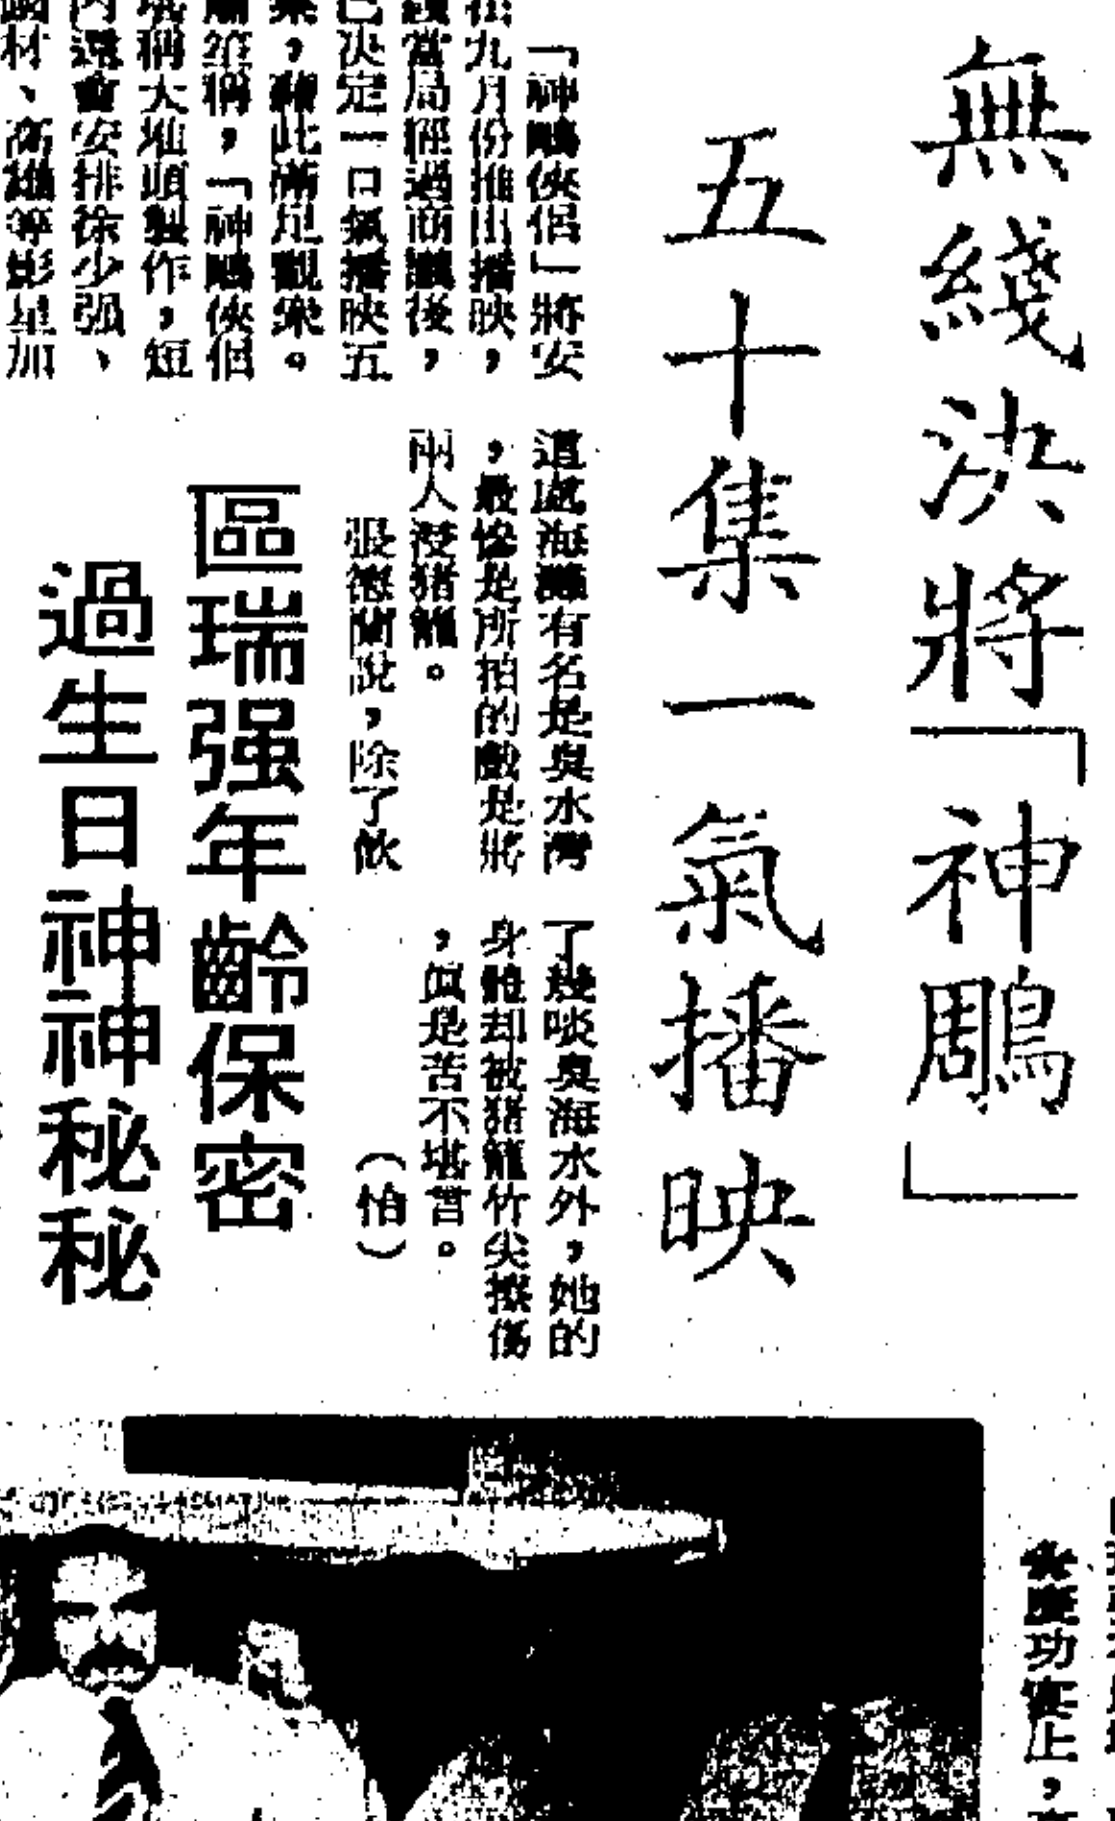 無綫決將「神鵰」
五十集一氣播映
「神鵰俠侶」將安
九月份推出播映，
當局經過商議後，
已決定一口氣播映五
，藉此滿足觀衆。
稱，「神鵰俠侶
稱大堆頭製作，短
內還會安排徐少强、
材、高雄等影星加
這處海灘有名是臭水灣
，最慘是所拍的戲是將
兩人浸猪籠。
張德蘭說，除了飲
了幾啖臭海水外，她的
身體却被猪籠竹尖擦傷
，眞是苦不堪言。
（怡）
區瑞强年齡保密
過生日神神秘秘
功夫上，